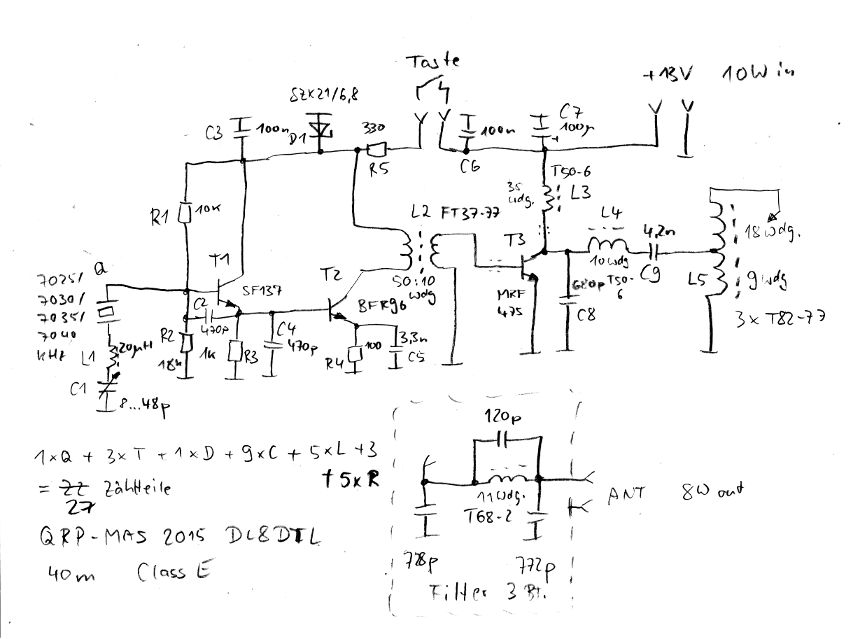 Taste
+13V 10W in
SZX21/6,8
C3 100n D1
330
R5
100n
C6
C7
100µ
R1 10K
L2 FT37-77
35
wdg.
T50-6
L3
T3
L4
4,2n
18Wdg.
7025/
7030/
7035/
7040
KHz
Q
T1
SF137
T2
50:10
wdg
MRF
475
10Wdg
T50-
6
C9
L5
9wdg
3xT82-77
680p
C8
C2
470p
BFR96
L1 20µH
R2
18k
1k
R3
C4
470p
R4
100
3,3n
C5
C1
8...48p
120p
11Wdg.
T68-2
ANT 8W out
778p
772p
Filter 3 Bt.
1xQ + 3xT + 1xD + 9xC + 5xL +3
+5xR
= 22 Zählteile
27
QRP-MAS 2015 DL8DTL
40m Class E